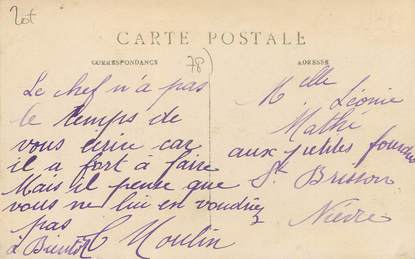 Lot
CARTE POSTALE
78)
CORRESPONDANCE
ADRESSE
Le chef n'a pas
le temps de
vous écrire car
il a fort à faire
Mais il pense que
vous ne lui en voudrez
pas
à Bientôt Moulin
Melle Léonie
Mathé
aux petites fourches
St Brisson
Nièvre